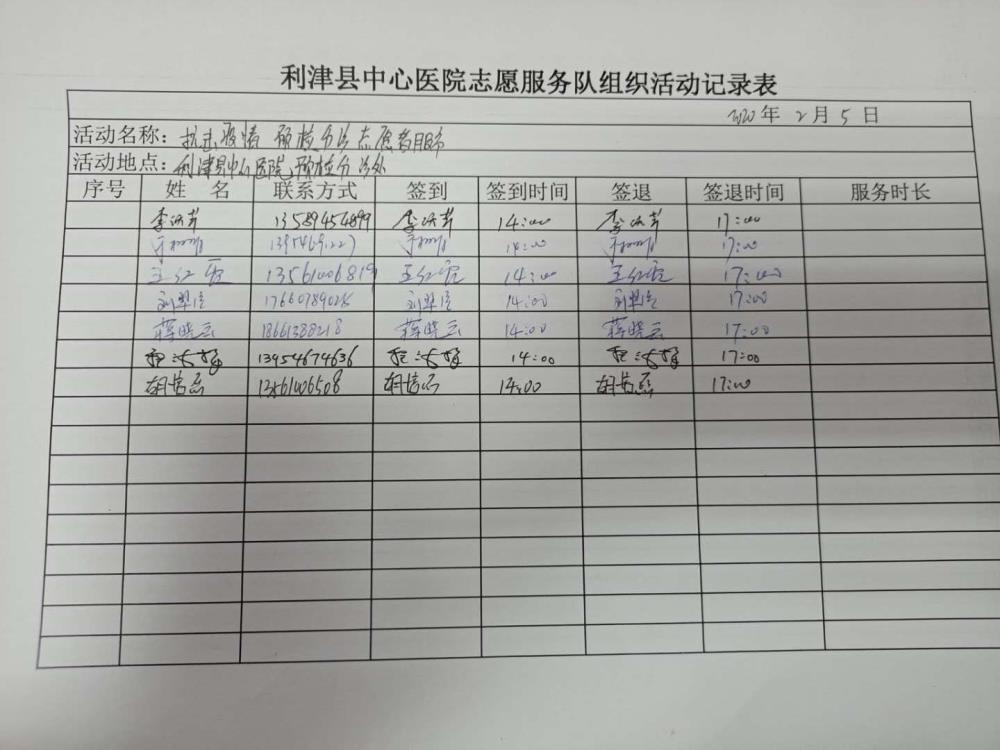 利津县中心医院志愿服务队组织活动记录表
2020年 2月 5日
活动名称：抗击疫情 预检分诊志愿者服务
活动地点：利津县中心医院预检分诊处
序号 姓 名 联系方式 签到 签到时间 签退 签退时间 服务时长
李 13589454899 李 14:00 李 17:00
于 13954691227 于 14:00 于 17:00
王红霞 13561006819 王红霞 14:00 王红霞 17:00
刘翠 17660789026 刘翠 14:00 刘翠 17:00
蒋晓云 18661388218 蒋晓云 14:00 蒋晓云 17:00
13954674636 14:00 17:00
胡 13561006508 胡 14:00 胡 17:00